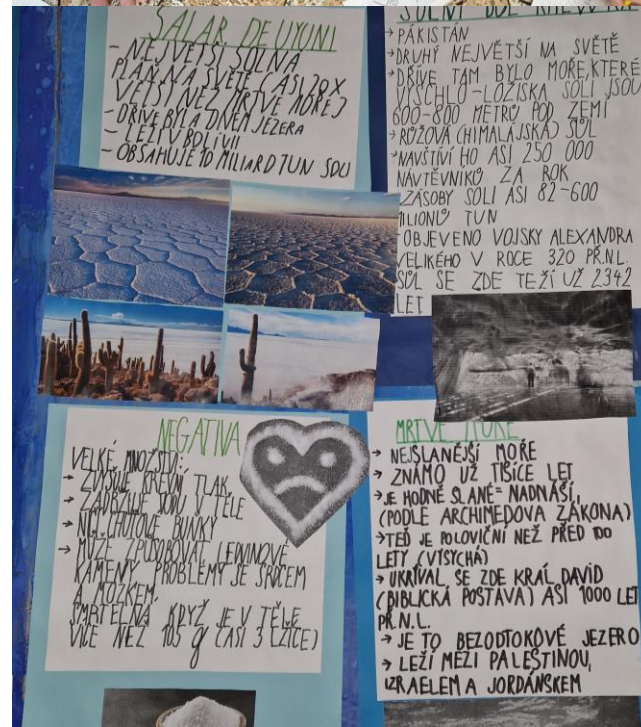 SALAR DE UYUNI
- NEJVĚTŠÍ SOLNÁ
PLÁŇ NA SVĚTĚ (ASI 20X
VĚTŠÍ NEŽ MRTVÉ MOŘE)
- DŘÍVE BYLA DNEM JEZERA
- LEŽÍ V BOLÍVII
- OBSAHUJE 10 MILIARD TUN SOLI
→ PÁKISTÁN
→ DRUHÝ NEJVĚTŠÍ NA SVĚTĚ
→ DŘÍVE TAM BYLO MOŘE, KTERÉ
VYSCHLO - LOŽISKA SOLI JSOU
600-800 METRŮ POD ZEMÍ
→ RŮŽOVÁ (HIMALÁJSKÁ) SŮL
→ NAVŠTÍVÍ HO ASI 250 000
NÁVTĚVNÍKŮ ZA ROK
ZÁSOBY SOLI ASI 82-600
MILIONŮ TUN
OBJEVENO VOJSKY ALEXANDRA
VELIKÉHO V ROCE 320 PŘ.N.L.
SŮL SE ZDE TEŽÍ UŽ 2342
LET
NEGATIVA
VELKÉ MNOŽSTVÍ:
→ ZVYŠUJE KREVNÍ TLAK
→ ZADRŽUJE VODU V TĚLE
→ NIČÍ CHUŤOVÉ BUŇKY
→ MŮŽE ZPŮSOBOVAT LEDVINOVÉ
KAMENY, PROBLÉMY SE SRDCEM
A MOZKEM
SMRTELNÁ KDYŽ JE V TĚLE
VÍCE NEŽ 105 g (ASI 3 LŽÍCE)
MRTVÉ MOŘE
→ NEJSLANĚJŠÍ MOŘE
→ ZNÁMO UŽ TISÍCE LET
→ JE HODNĚ SLANÉ = NADNÁŠÍ,
(PODLE ARCHIMEDOVA ZÁKONA)
→ TEĎ JE POLOVIČNÍ NEŽ PŘED 100
LETY (VYSYCHÁ)
→ UKRÝVAL SE ZDE KRÁL DAVID
(BIBLICKÁ POSTAVA) ASI 1000 LET
PŘ.N.L.
→ JE TO BEZODTOKOVÉ JEZERO
→ LEŽÍ MEZI PALESTINOU,
IZRAELEM A JORDÁNSKEM